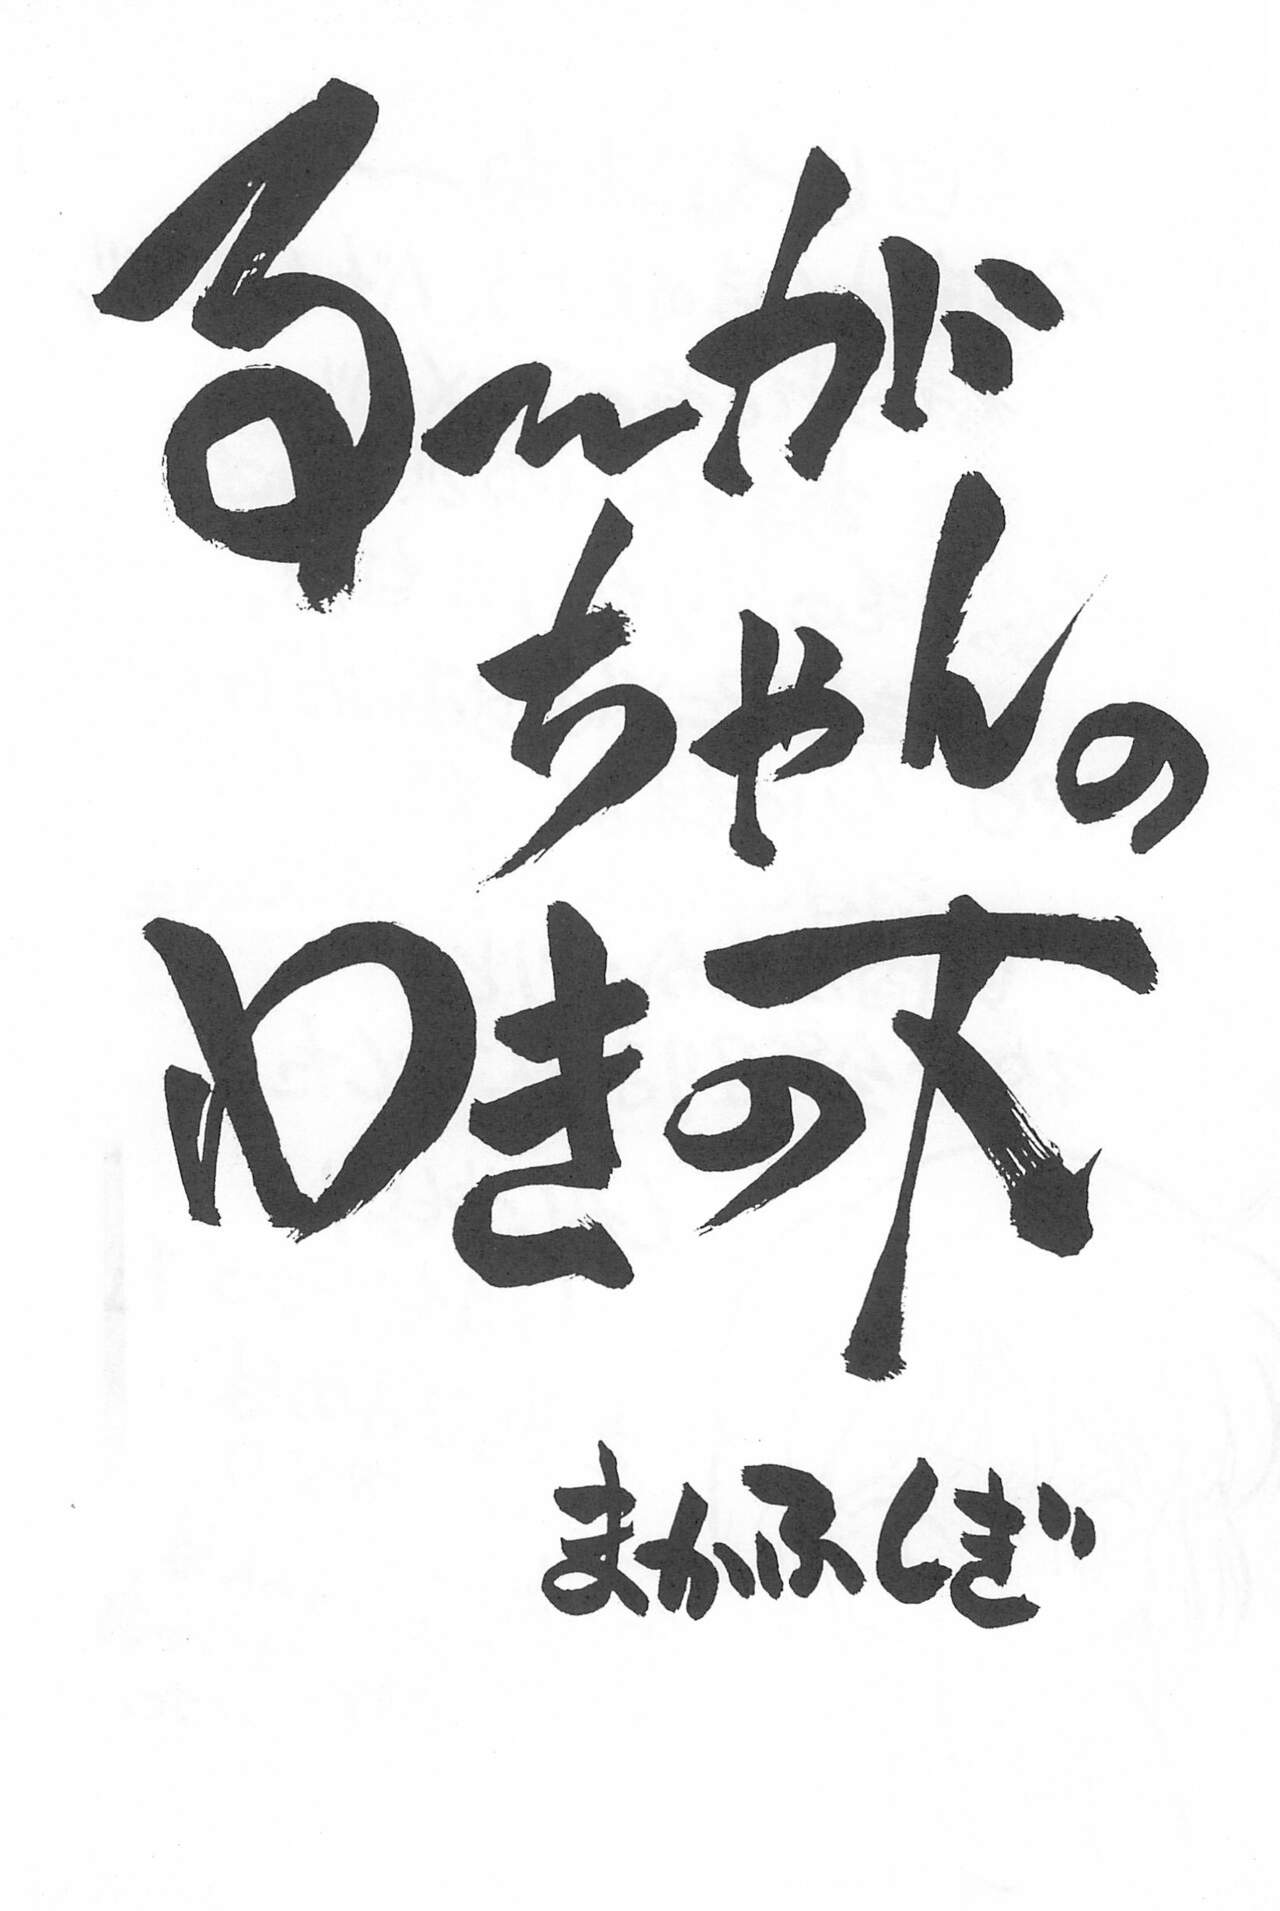 る〜が
ちゃんの
わきの下
まかふしぎ